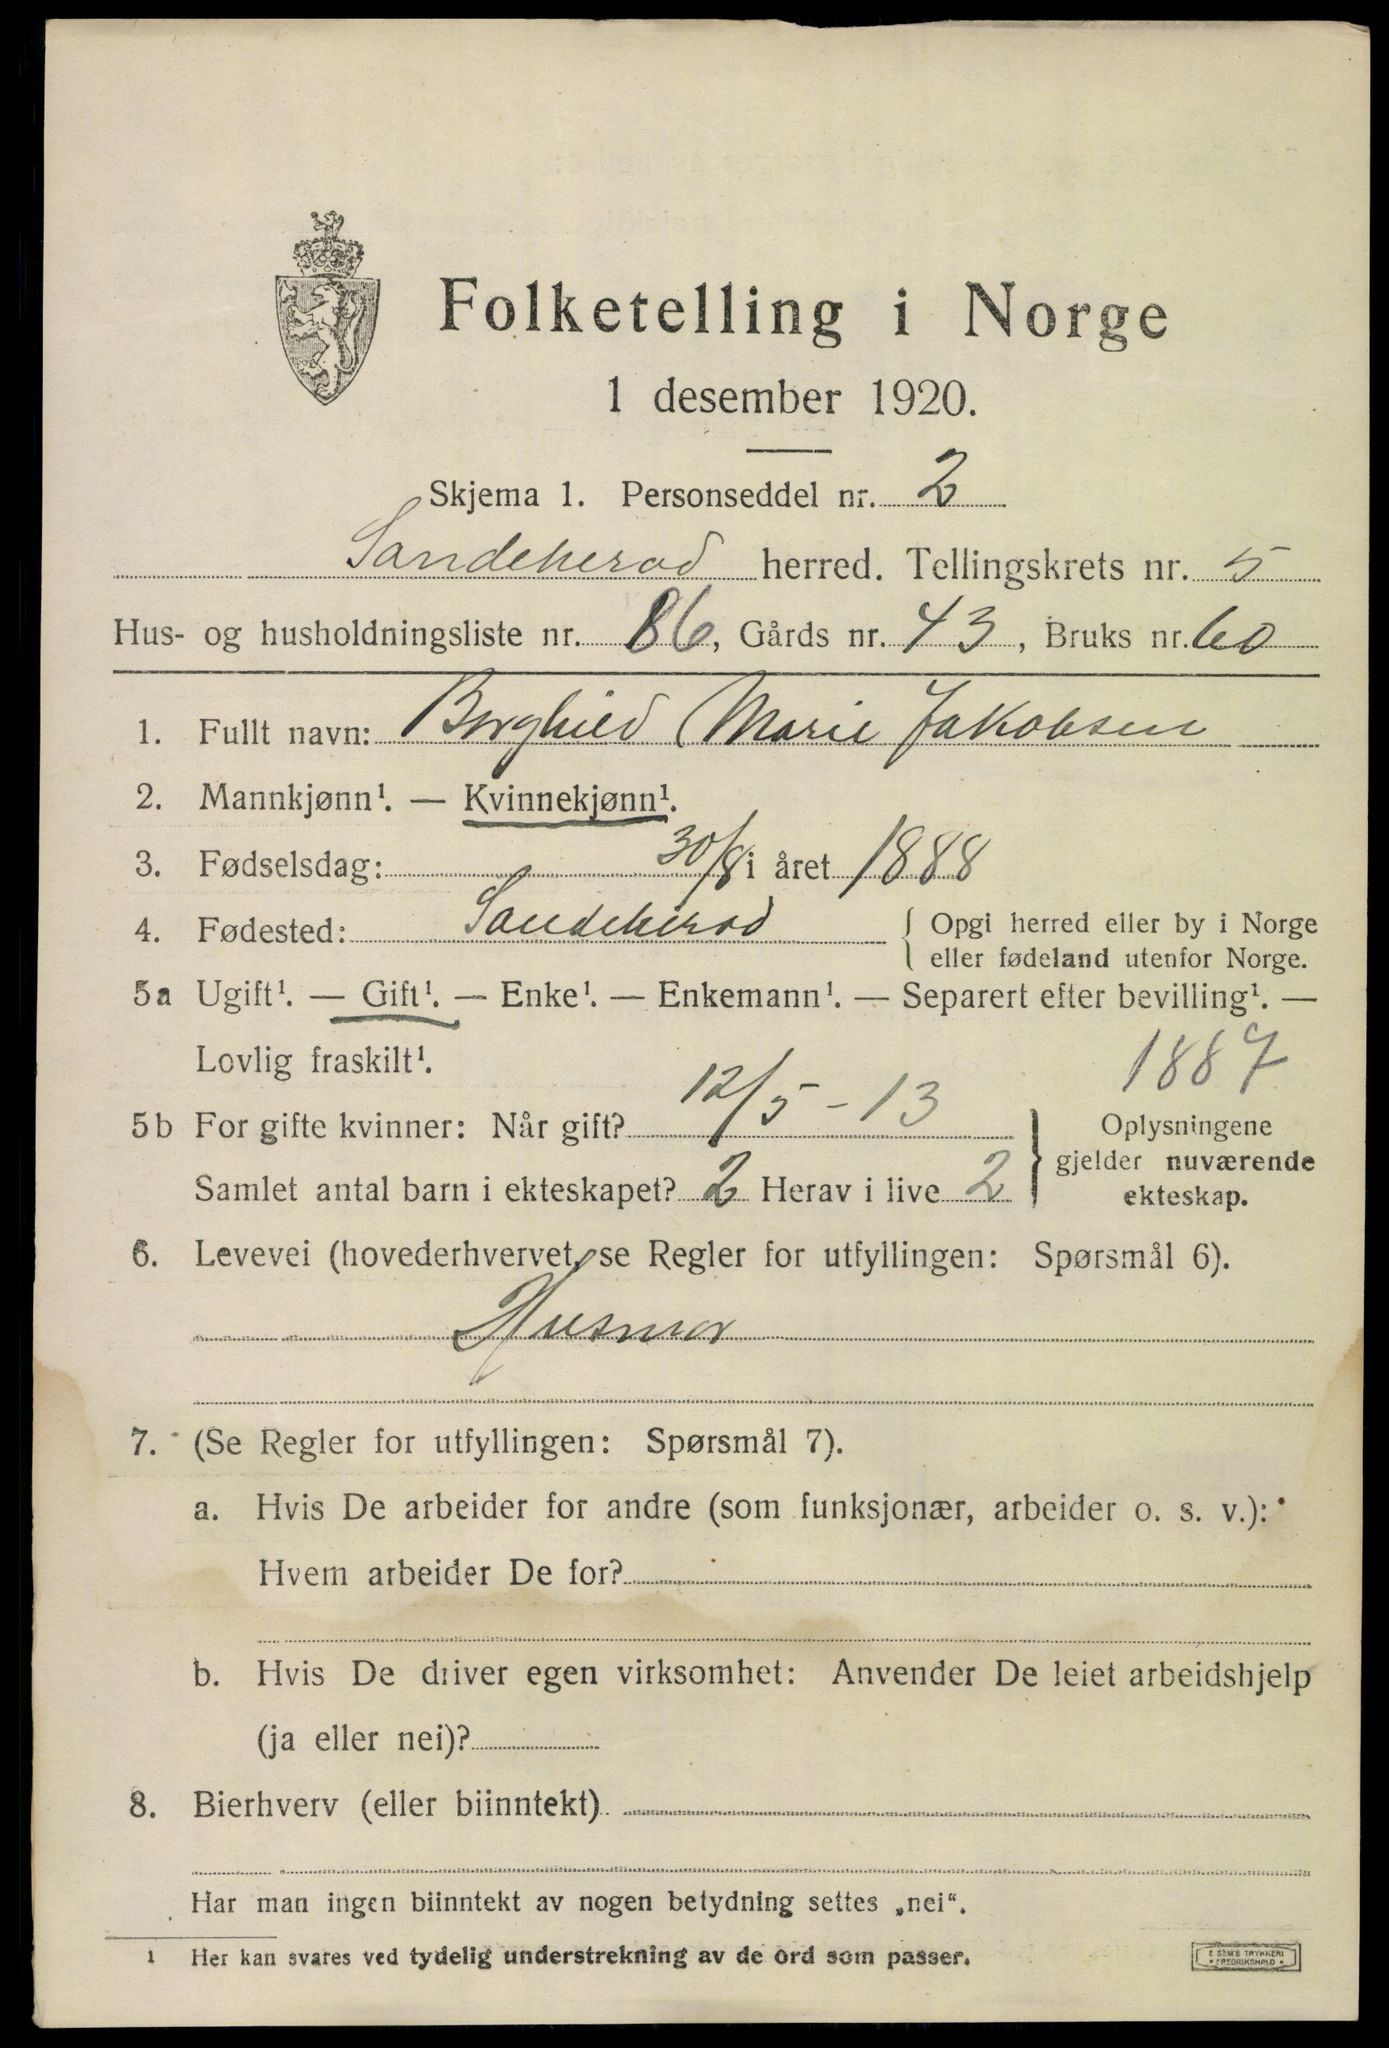 Folketelling i Norge
1 desember 1920.
Skjema 1. Personseddel nr. 2
Sandeherad herred. Tellingskrets nr. 5
Hus- og husholdningsliste nr. 86, Gårds nr. 43, Bruks nr. 60
1. Fullt navn: Borghild Marie Jakobsen
2. Mannkjønn¹. — Kvinnekjønn¹.
3. Fødselsdag: 30/8 i året 1888
4. Fødested: Sandeherad { Opgi herred eller by i Norge
eller fødeland utenfor Norge.
5a Ugift¹. — Gift¹. — Enke¹. — Enkemann¹. — Separert efter bevilling¹. —
Lovlig fraskilt¹.
1887
5b For gifte kvinner: Når gift? 12/5 - 13
Samlet antal barn i ekteskapet? 2 Herav i live 2
} Oplysningene
gjelder nuværende
ekteskap.
6. Levevei (hovederhvervet, se Regler for utfyllingen: Spørsmål 6).
Husmor
7. (Se Regler for utfyllingen: Spørsmål 7).
a. Hvis De arbeider for andre (som funksjonær, arbeider o. s. v.):
Hvem arbeider De for?
b. Hvis De driver egen virksomhet: Anvender De leiet arbeidshjelp
(ja eller nei)?
8. Bierhverv (eller biinntekt)
Har man ingen biinntekt av nogen betydning settes „nei“.
1 Her kan svares ved tydelig understrekning av de ord som passer.
E. SEM'S TRYKKERI
FREDRIKSHALD